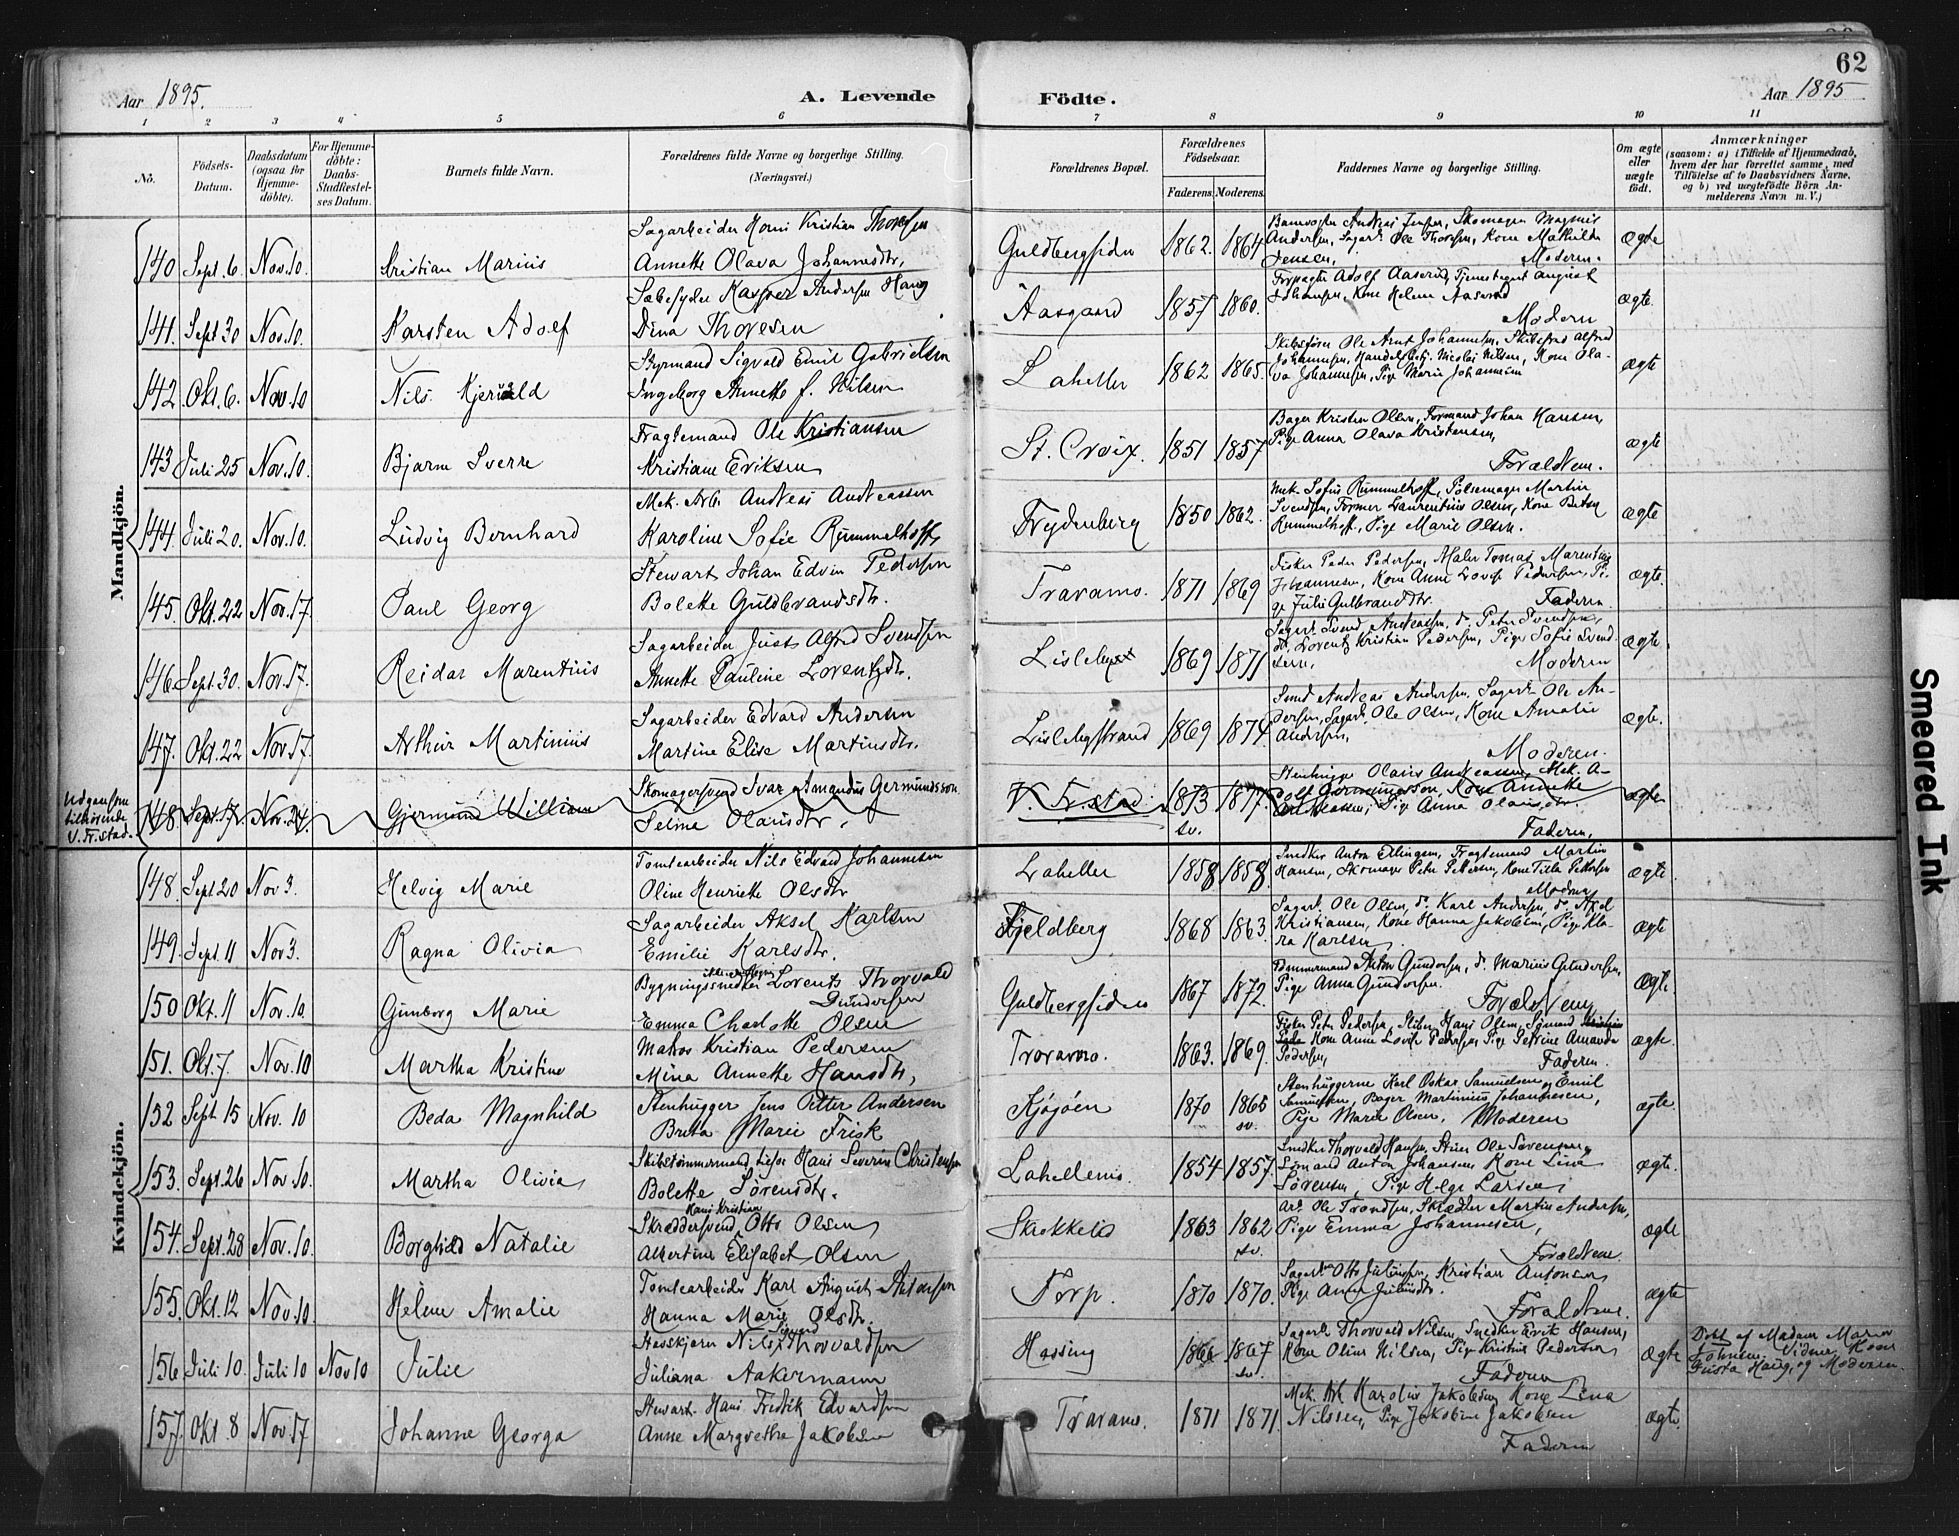 62
Aar 1895.
A. Levende Födte.
Aar 1895
1 2 3 4 5 6 7 8 9 10 11
No.
Födsels-Datum.
Daabsdatum (ogsaa for Hjemmedöbte).
For Hjemmedöbte: Daabs-Stadfæstelses Datum.
Barnets fulde Navn.
Forældrenes fulde Navne og borgerlige Stilling. (Næringsvei.)
Forældrenes Bopæl.
Forældrenes Födselsaar.
Faderens. Moderens.
Faddernes Navne og borgerlige Stilling.
Om ægte eller uægte födt.
Anmærkninger
(saasom: a) i Tilfælde af Hjemmedaab,
hvem der har forrettet samme, med
Tilföielse af to Daabsvidners Navne,
og b) ved uægtefödte Börn Anmelderens Navn m. V.)
Mandkjön.
140 Sept. 6. Nov. 10. Kristian Marius
Sagarbeider Hans Kristian Thoresen
Annette Olava Johannesdtr,
Guldbergsiden 1862. 1864
Andersen, Sagarb. Ole Thoresen, Kone Mathilde
Jensen, Moderen.
ægte
141. Sept 30 Nov. 10. Karsten Adolf
Sæbesyder Kasper Andersen Haug
Dina Thoresen
Aasgaard 1857 1860.
Forpagter Adolf Aaserud, Tjenestegut August
Johansen, Kone Helene Aaserud
Moderen
ægte.
142. Okt. 6. Nov. 10 Nils Kjeruld
Styrmand Sigvald Emil Gabrielsen
Ingeborg Annette f. Nilsen
Lahellen 1862 1865.
Skibsfører Ole Arnt Johannesen, Skibsfred Alfred
Johannesen, Handelsbetj. Nicolai Nilsen, Kone Olava Johannesen, Pige Marie Johannesen
ægte
143 Juli 25 Nov. 10. Bjarne Sverre
Fragtemand Ole Kristiansen
Kristiane Eriksen
St. Croix. 1851 1857
Bager Kristen Olsen, Formand Johan Hansen,
Pige Anna Olava Kristensen,
Forældrene.
ægte
144. Juli 20. Nov. 10. Ludvig Bernhard
Mek. Arb. Andreas Andreassen
Karoline Sofie Rummelhoff
Frydenberg 1850 1862.
Mek. Sofus Rummelhoff, Pølsemager Martin
Svendsen, Former Laurentius Olsen, Kone Betsy
Rummelhoff, Pige Marie Olsen.
ægte
145. Okt. 22 Nov. 17. Paul Georg
Stewart Johan Edvin Pedersen
Bolette Guldbrandsdtr.
Traramo. 1871 1869
Fisker Peder Pedersen, Maler Tomas Marentius
Johannesen, Kone Anne Lovise Pedersen, Pige Julie Gulbrandsdtr. Faderen
ægte.
146 Sept. 30. Nov. 17. Reidar Marentius
Sagarbeider Just Alfred Svendsen
Annette Pauline Lorentzdtr.
Lisleby 1869 1871
Sagarb. Svend Andreassen, d. Peter Svendsen,
do. Lorentz Kristian Pedersen, Pige Sofie Svendsen, Moderen
ægte.
147. Okt. 22 Nov 17. Arthur Martinius
Sagarbeider Edvard Andersen
Martine Elise Martinsdtr.
Lislebystrand 1869 1874
Smed Andreas Andersen, Sagarb. Ole Andersen, Sagarb. Ole Olsen, Kone Amalie
Andersen, Moderen.
ægte.
Udgaar som tilhørende V. Fr.stad.
148. Sept. 17 Nov. 24. Gjermund William
Skomagersvend Ivar Amandus Germundsson
Selma Olausdtr.
V. Fr.stad 1873 sv. 1877
Stenhugger Olaus Andreassen, Mek. Adolf Germundsson, Kone Annette
Andreassen, Pige Anna Olausdtr.
Faderen,
ægte
Kvindekjön.
148. Sept 20 Nov 3. Helvig Marie
Tomtearbeider Nils Edvard Johannesen
Oline Henriette Olsdtr
Lahellen 1858 1858.
Snedker Anton Ellingsen, Fragtemand Martin
Hansen, Skomager Peter Pettersen, Kone Tilla Pettersen
Moderen
ægte
149. Sept. 11 Nov 3. Ragna Olivia
Sagarbeider Aksel Karlsen
Emilie Karlsdtr.
Fjeldberg 1868 1863.
Sagarb. Ole Olsen, d. Karl Andersen, d. Axel
Kristiansen, Kone Hanna Jakobsen, Pige Klara Karlsen
ægte
150 Okt. 11 Nov. 10. Gunborg Marie
Bygningssnedker Lorents Thorvald
Gundersen
Emma Charlotte Olsen
Guldbergsiden 1867 1872.
Tømmermand Anton Gundersen, d. Marius Gundersen,
Pige Anna Gundersen.
Forældrene
ægte.
151. Okt. 7. Nov. 10 Martha Kristine
Matros Kristian Pedersen
Mina Annette Hansdtr,
Traramo. 1863. 1869.
Fisker Peter Pedersen, Hans Olsen, Sømand
Kone Anne Lovise Pedersen, Pige Petrine Amanda
Pedersen, Faderen.
ægte.
152 Sept. 15 Nov. 10 Beda Magnhild
Stenhugger Jens Petter Andersen
Brita Marie Frisk
Kjøgøen 1870 1865 sv.
Stenhuggerne Karl Oskar Samuelsen og Emil
Samuelsen, Bager Martinius Johannesen,
Pige Marie Olsen, Moderen
ægte.
153. Sept. 26 Nov. 10. Martha Olivia
Skibstømmermand Hans Severin Christensen
Bolette Sørensdtr.
Lahellens. 1854 1857.
Snedker Thorvald Hansen, Stuer Ole Sørensen,
Sømand Anton Johansen, Kone Lina
Sørensen, Pige Helga Larsen,
ægte.
154. Sept. 28 Nov. 10. Borghild Natalie
Hans Kristian
Skræddersvend Otto Olsen,
Albertine Elisabet Olsen
Skakkelid 1863 1862 sv.
Arb. Ole Trondsen, Skrædder Martin Andersen,
Pige Emma Johannesen,
Forældrene
ægte
155. Okt. 12 Nov. 10 Helene Amalie
Tomtearbeider Karl August Antonsen
Hanna Marie Olsdtr.
Torp. 1870 1870.
Sagarb. Otto Juliussen, Kristian Antonsen,
Pige Anna Juliusdtr.
Forældrene.
ægte
156 Juli 10. Juli 10 Nov 10 Julie
Havskjærer Nils Sigvard Thorvaldsen
Juliana Aakermann
Hassing 1866 1867 sv.
Sagarb. Thorvald Nilsen, Snedker Erik Hansen,
Kone Oline Nilsen, Pige Kristine Pedersen
Faderen
ægte
Døbt af Madam Maren
Johnsen. Vidner Kone
Gusta Haug, og Moderen.
157. Okt. 8 Nov. 17 Johanne Georga
Stewart Hans Fredrik Edvardsen
Anne Margrethe Jakobsen
Traramo. 1871 1871.
Mek. Arb. Karolius Jakobsen, Kone Lina
Nilssen, Pige Jakobine Jakobsen
Faderen
ægte.
Smeared Ink